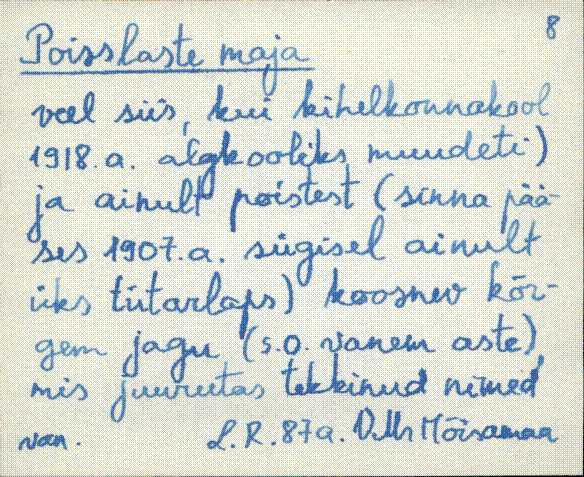 8
Poisslaste maja
veel siis, kui kihelkonnakool
1918.a. algkooliks muudeti)
ja ainult poistest (sinna pää-
ses 1907.a. sügisel ainult
üks tütarlaps) koosnev kõr-
gem jagu (s.o. vanem aste),
mis juurutas tekkinud nimed
van. L.R. 87a. Mõisamaa